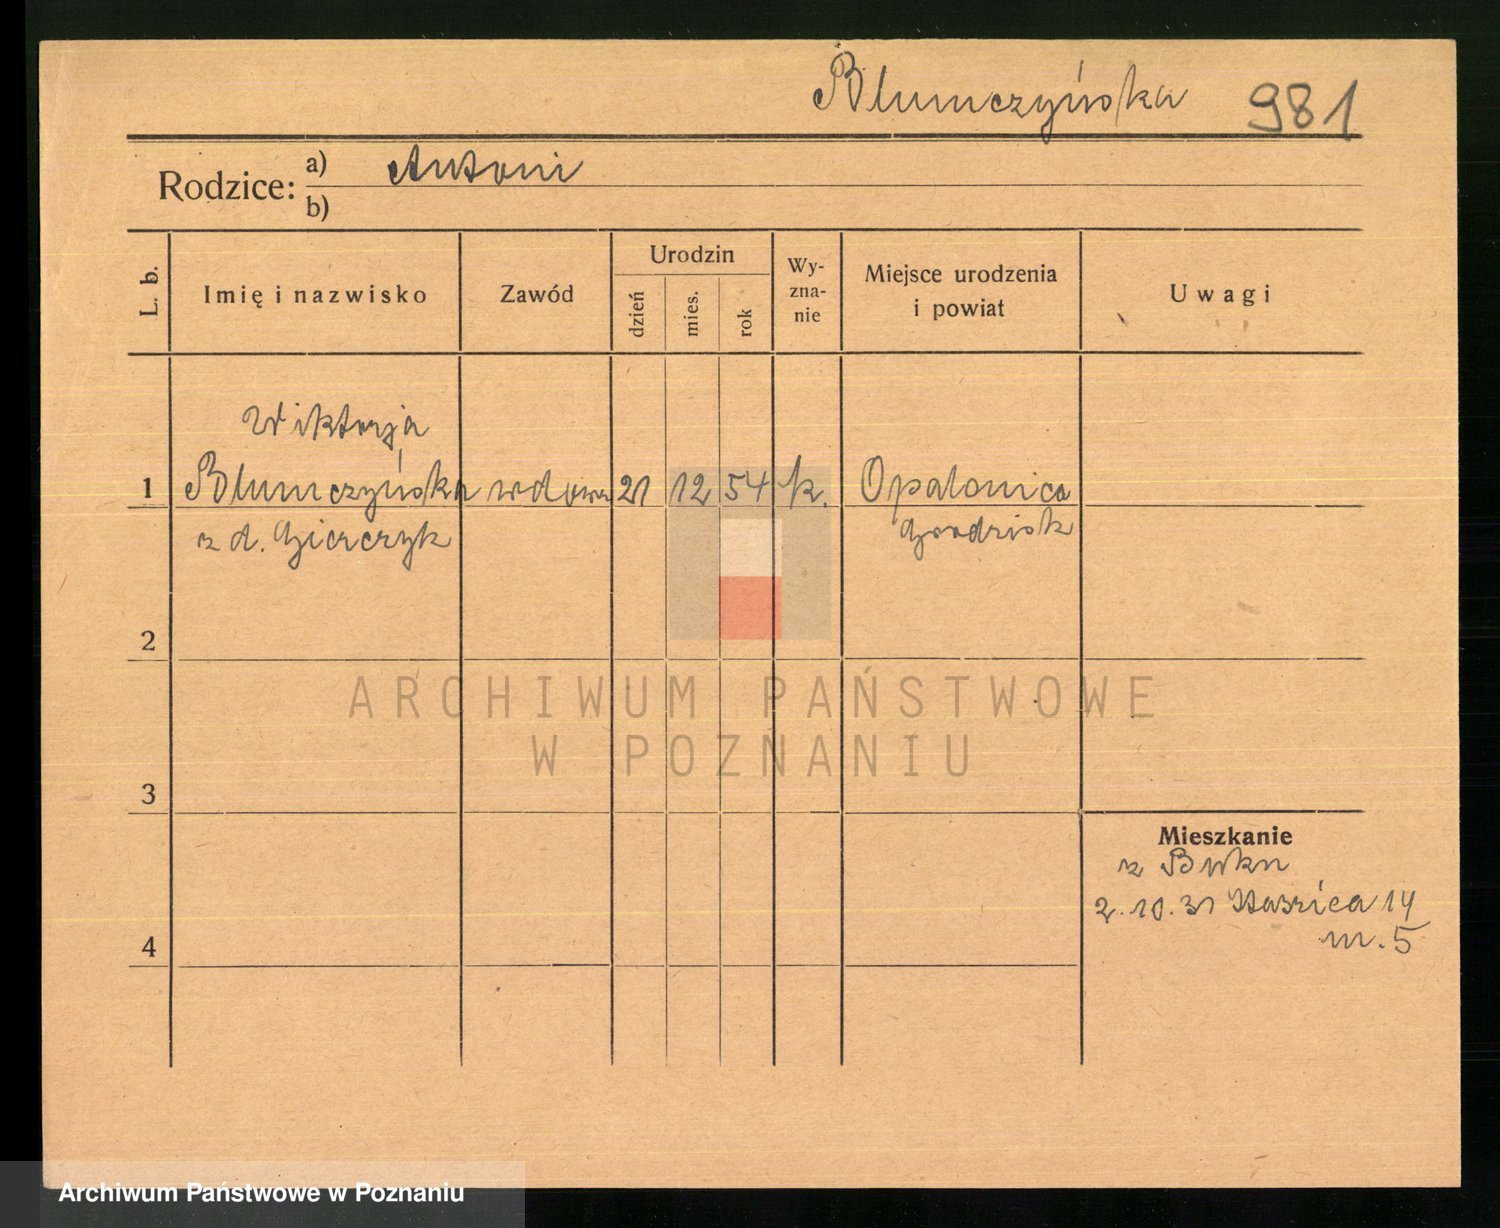 Blumczyńska 981
Rodzice: a) Antoni
b)
L. b. Imię i nazwisko Zawód Urodzin dzień mies. rok Wy-zna-nie Miejsce urodzenia i powiat Uwagi
Wiktorja
1 Blumczyńska wdowa 21 12 54 k. Opalenica
z d. Gierczyk Grodzisk
2
ARCHIWUM PAŃSTWOWE
W POZNANIU
3
Mieszkanie
z Buku
2.10.31 Staszica 14
4 m. 5
Archiwum Państwowe w Poznaniu